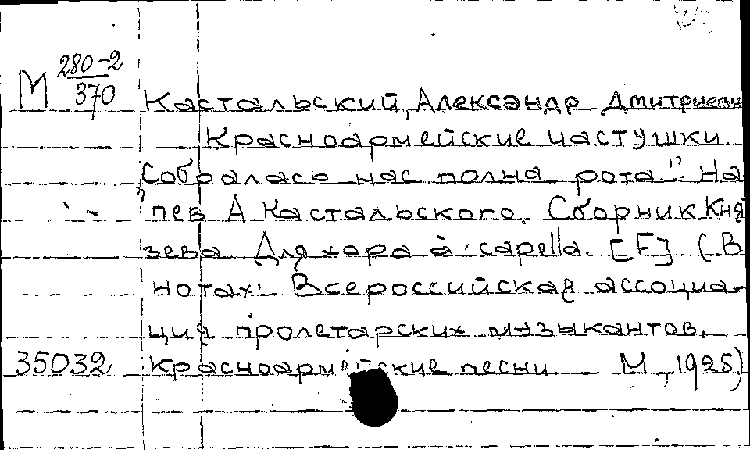 М 280-2
370
Кастальский, Александр Дмитриевич
Красноармейские частушки.
"Собралась нас полна рота". На-
пев А Кастальского. Сборник Кня
зева Для хора à capella. [F] (В
нотах: Всероссийская ассоциа-
ция пролетарских музыкантов.
35032 Красноармейские песни М, 1925)